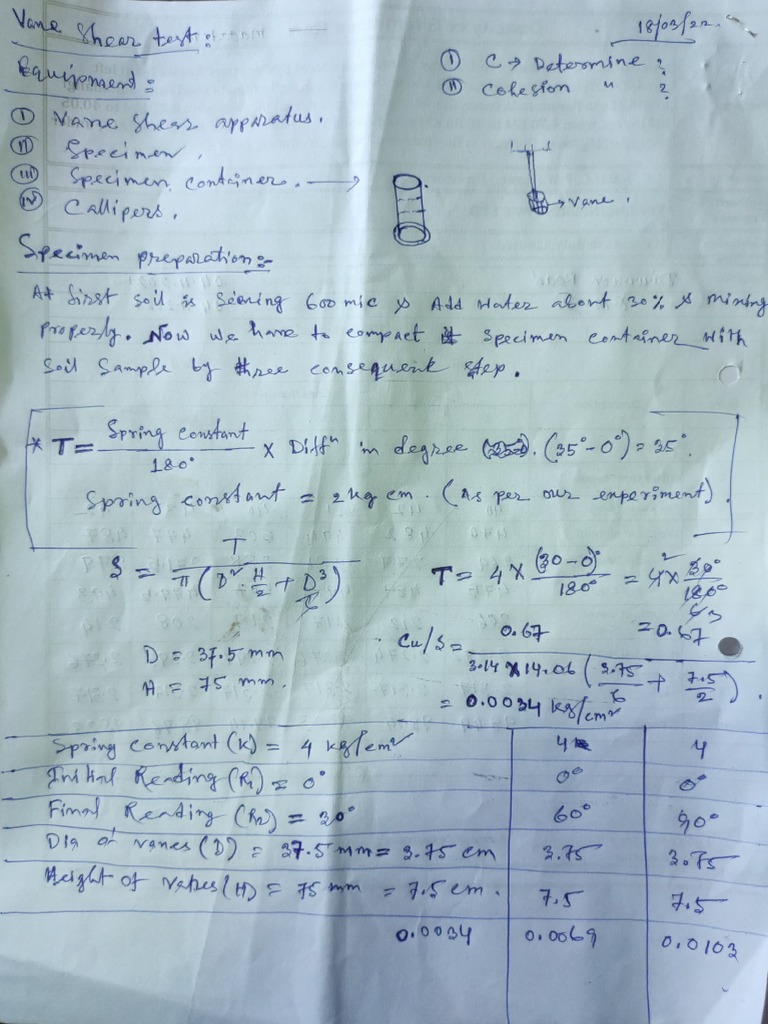 Vane Shear test :
18/03/22
Equipment :
(I) C → Determine ?
(II) Cohesion " ?
(I) Vane Shear apparatus.
(II) Specimen,
(III) Specimen container. →
(IV) Callipers.
→ Vane.
Specimen preparation :-
At first soil is Seiving 600 mic & Add water about 30% & mixing
properly. Now we have to compact specimen container with
Soil Sample by three consequent step.
* T = Spring constant / 180° × Diffn in degree (35° - 0°) = 35°.
Spring constant = 2 kg cm. (As per our experiment).
S = T / π (D² · H/2 + D³/6)
T = 4 × (30 - 0)° / 180° = 4 × 30° / 180°
= 0.67
D = 37.5 mm
H = 75 mm.
Cu/S = 0.67 / 3.14 × 14.06 (3.75/6 + 7.5/2).
= 0.0034 kg/cm²
Spring constant (K) = 4 kg/cm² 4 4
Initial Reading (R1) = 0° 0° 0°
Final Reading (R2) = 30° 60° 90°
Dia of vanes (D) = 37.5 mm = 3.75 cm 3.75 3.75
Height of vanes (H) = 75 mm = 7.5 cm. 7.5 7.5
0.0034 0.0069 0.0103